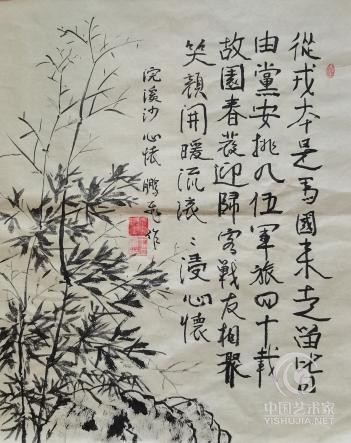 從戎本是為國来去留皆
由黨安排入伍軍旅四十載
故園春迎歸客戰友相聚
笑顏開暖流滚：浸心懷
浣溪沙 心懷 鵬飛作
中国艺术家
YISHUJIA.NET